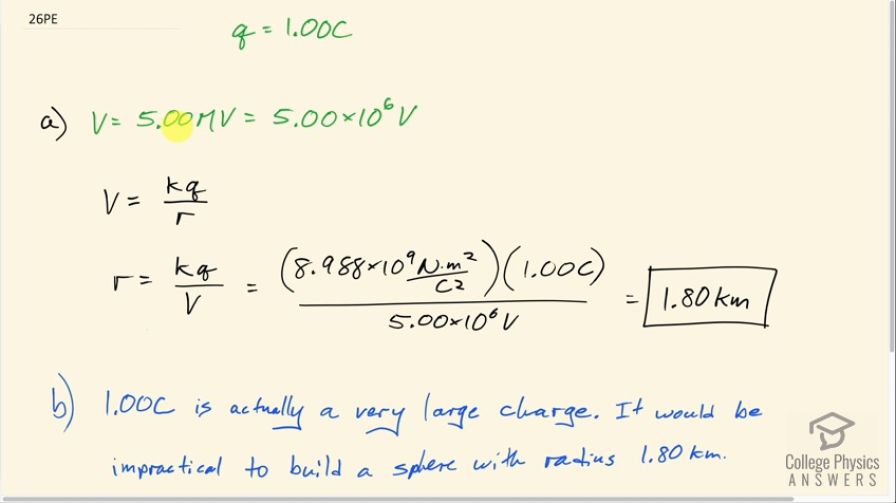 26PE
q = 1.00C
a) V = 5.00MV = 5.00×10⁶ V
V = kq/r
r = kq/V = (8.988×10⁹ N·m²/C²)(1.00C)/5.00×10⁶ V = 1.80 km
b) 1.00C is actually a very large charge. It would be
impractical to build a sphere with radius 1.80 km.
College Physics
ANSWERS